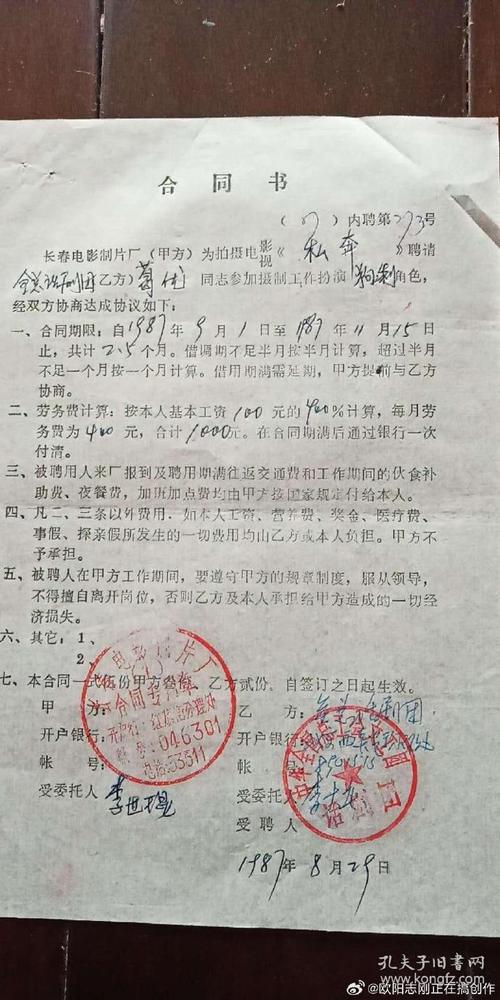 合同书
(87)内聘第273号
长春电影制片厂(甲方)为拍摄电影视《私奔》聘请
全总话剧团(乙方)葛优同志参加摄制工作扮演狗剩角色,
经双方协商达成协议如下:
一、合同期限:自1987年9月1日至1987年11月15日
止,共计2.5个月。借调期不足半月按半月计算,超过半月
不足一个月按一个月计算。借用期满需延期,甲方提前与乙方
协商。
二、劳务费计算:按本人基本工资100元的400%计算,每月劳
务费为400元,合计1000元。在合同期满后通过银行一次
付清。
三、被聘用人来厂报到及聘用期满往返交通费和工作期间的伙食补
助费、夜餐费,加班加点费均由甲方按国家规定付给本人。
四、凡二、三条以外费用,如本人工资、营养费、奖金、医疗费、
事假、探亲假所发生的一切费用均由乙方或本人负担。甲方不
予承担。
五、被聘人在甲方工作期间,要遵守甲方的规章制度,服从领导,
不得擅自离开岗位,否则乙方及本人承担给甲方造成的一切经
济损失。
六、其它:1、
2、
七、本合同一式伍份甲方叁份,乙方贰份,自签订之日起生效。
甲方: 乙方:全总话剧团
开户银行: 开户银行:
帐号: 帐号:
受委托人 李世耀 受委托人
受聘人
1987年8月29日
电影制片厂
合同专用章
046301
电话:53311
话剧团
孔夫子旧书网
@欧阳志刚正在搞创作